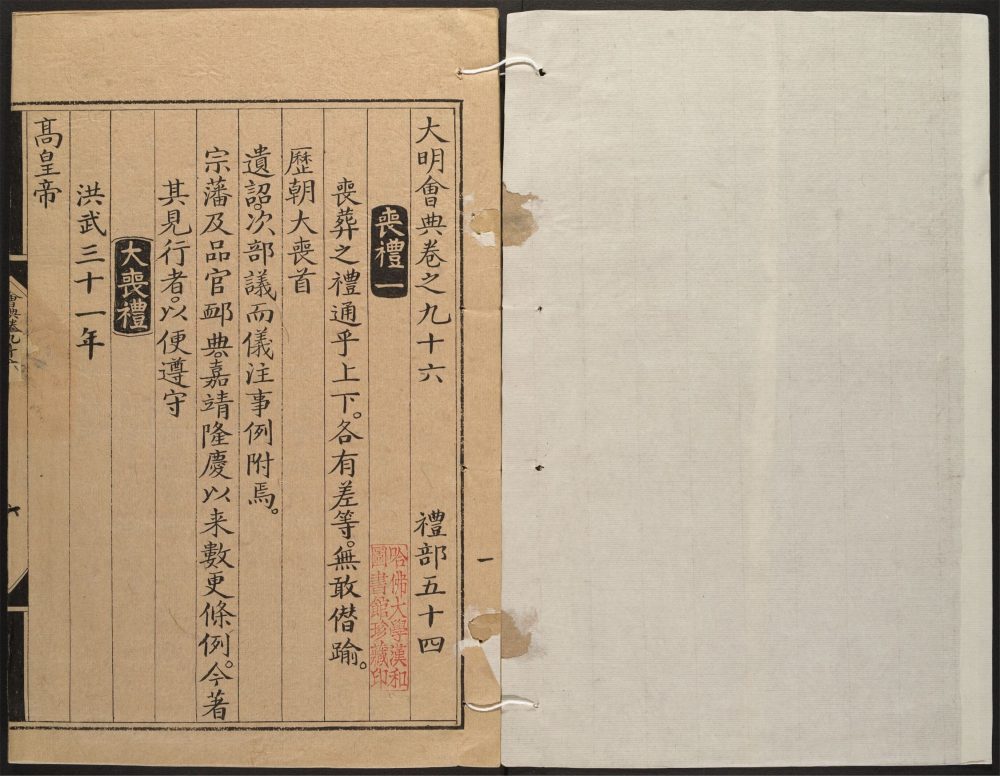 大明會典卷之九十六 禮部五十四
喪禮一
喪葬之禮通乎上下。各有差等。無敢僣踰。
歷朝大喪首
遺詔。次部議而儀注事例附焉。
宗藩及品官䘏典。嘉靖隆慶以来數更條例。今著
其見行者。以便遵守
大喪禮
洪武三十一年
高皇帝
會典卷九十六
一
哈佛大學漢和
圖書館珍藏印